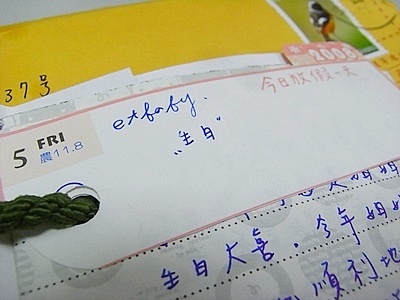 37号
2008
今日放假一天
5 FRI
農11.8
etbaby.
"生日"
生日大喜。今年
順利地